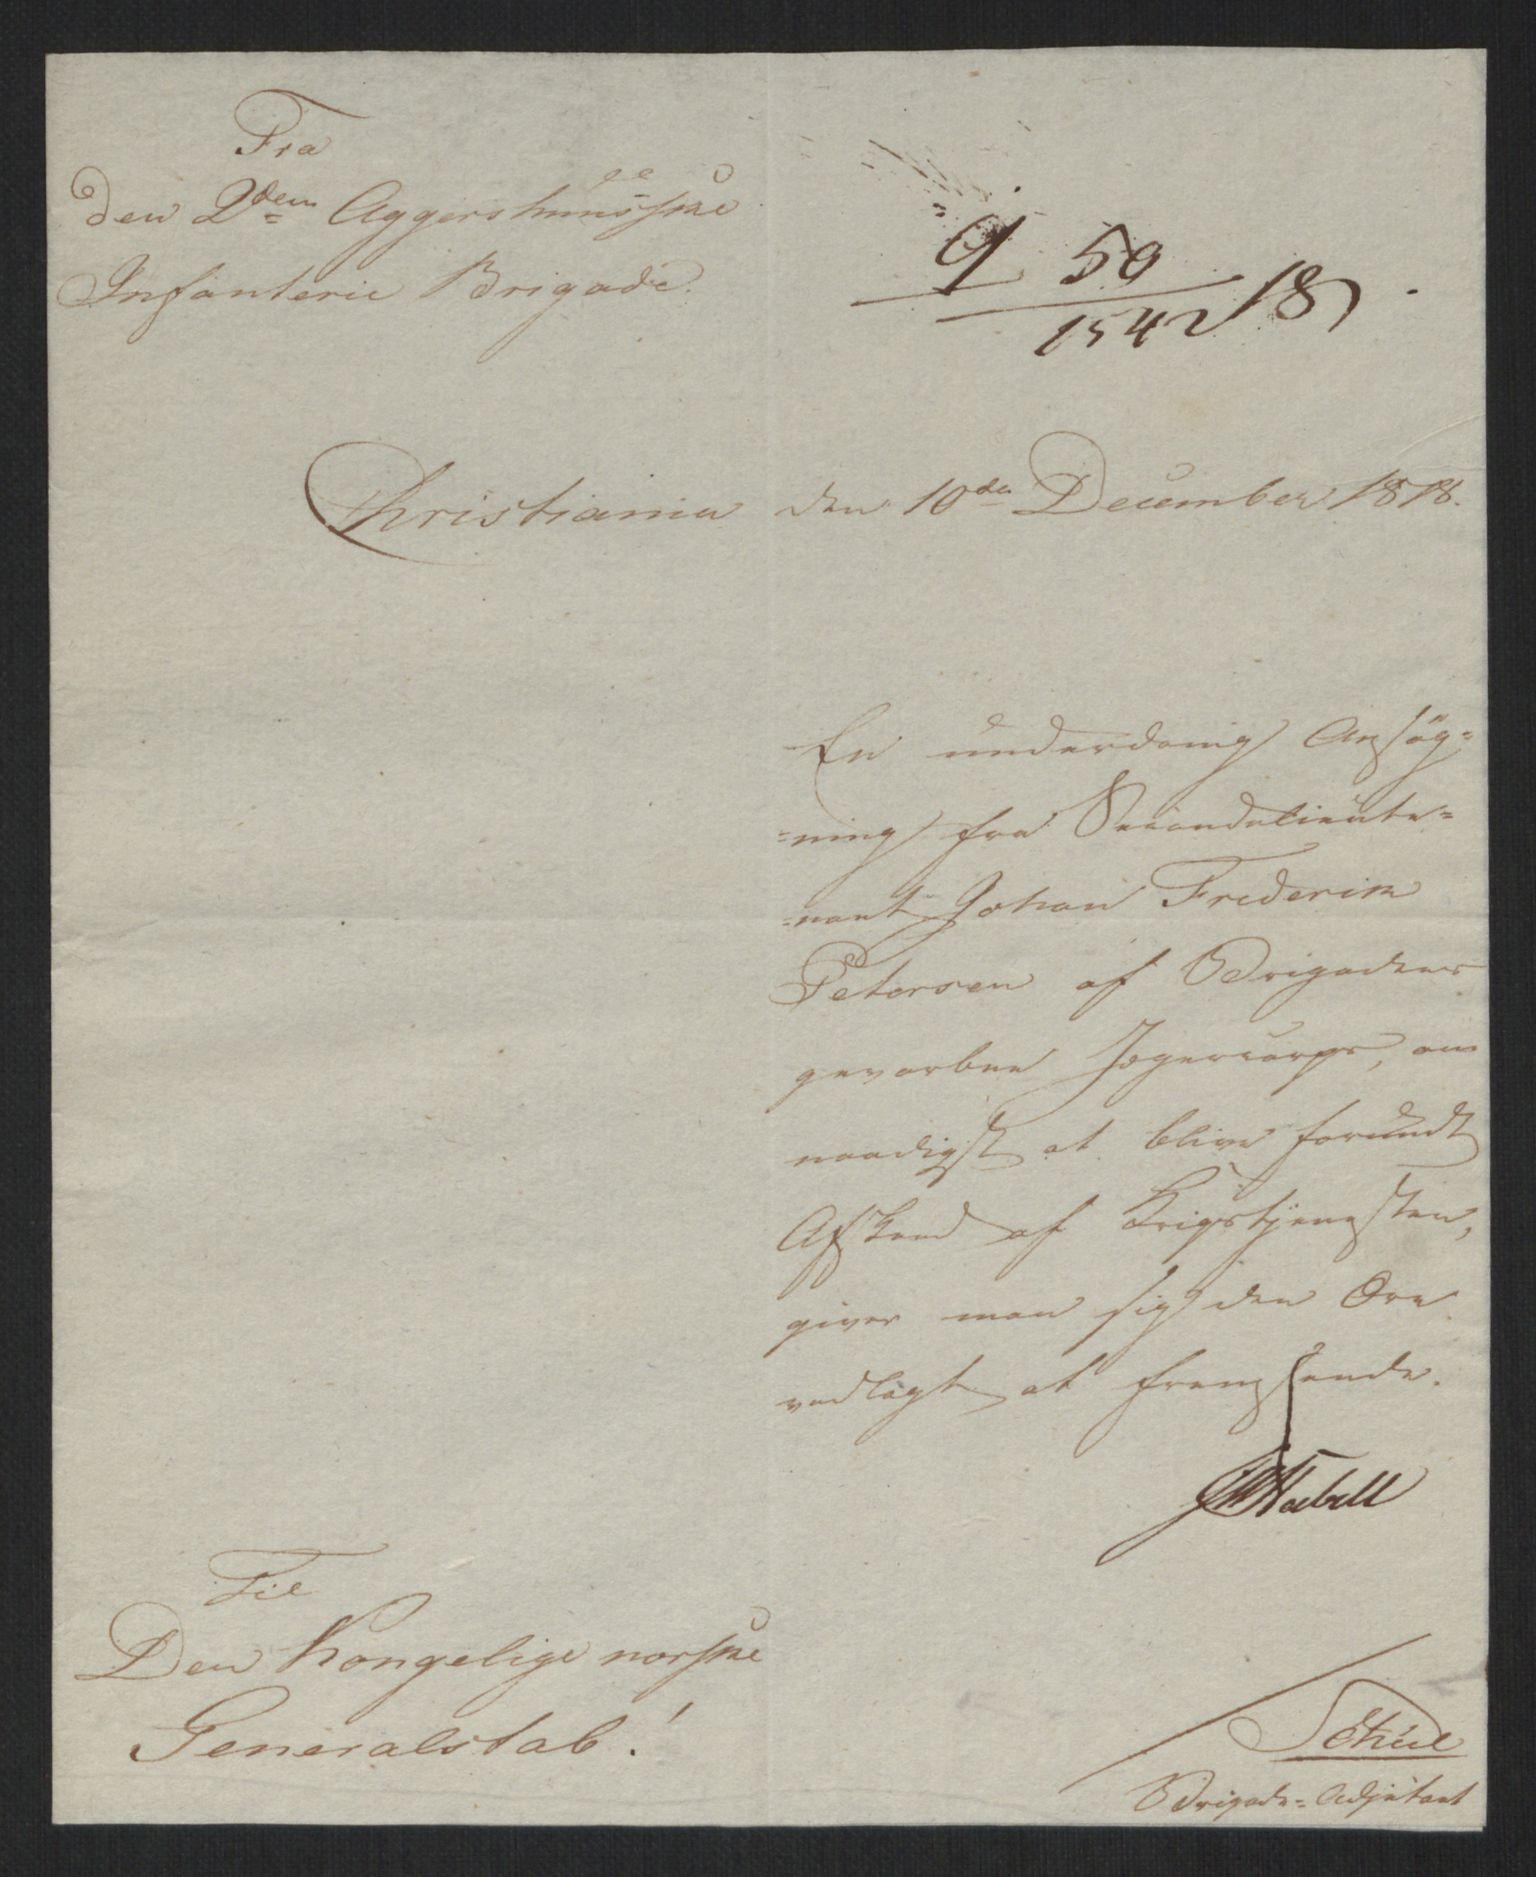 Fra
den 2den Aggershuusske
Infanterie Brigade.
9 50
1542 18
Christiania den 10de December 1818.
En underdanig Ansøg=
=ning fra Secondelieute=
=nant Johan Frederik
Petersen af Brigadens
gevorbne Jægercorps, om
naadigst at blive forundt
Afskeed af Krigstjenesten,
giver man sig den Ære
vedlagt at fremsende.
Stabell
Til
Den Kongelige norske
Generalstab!
Brigade=Adjutant